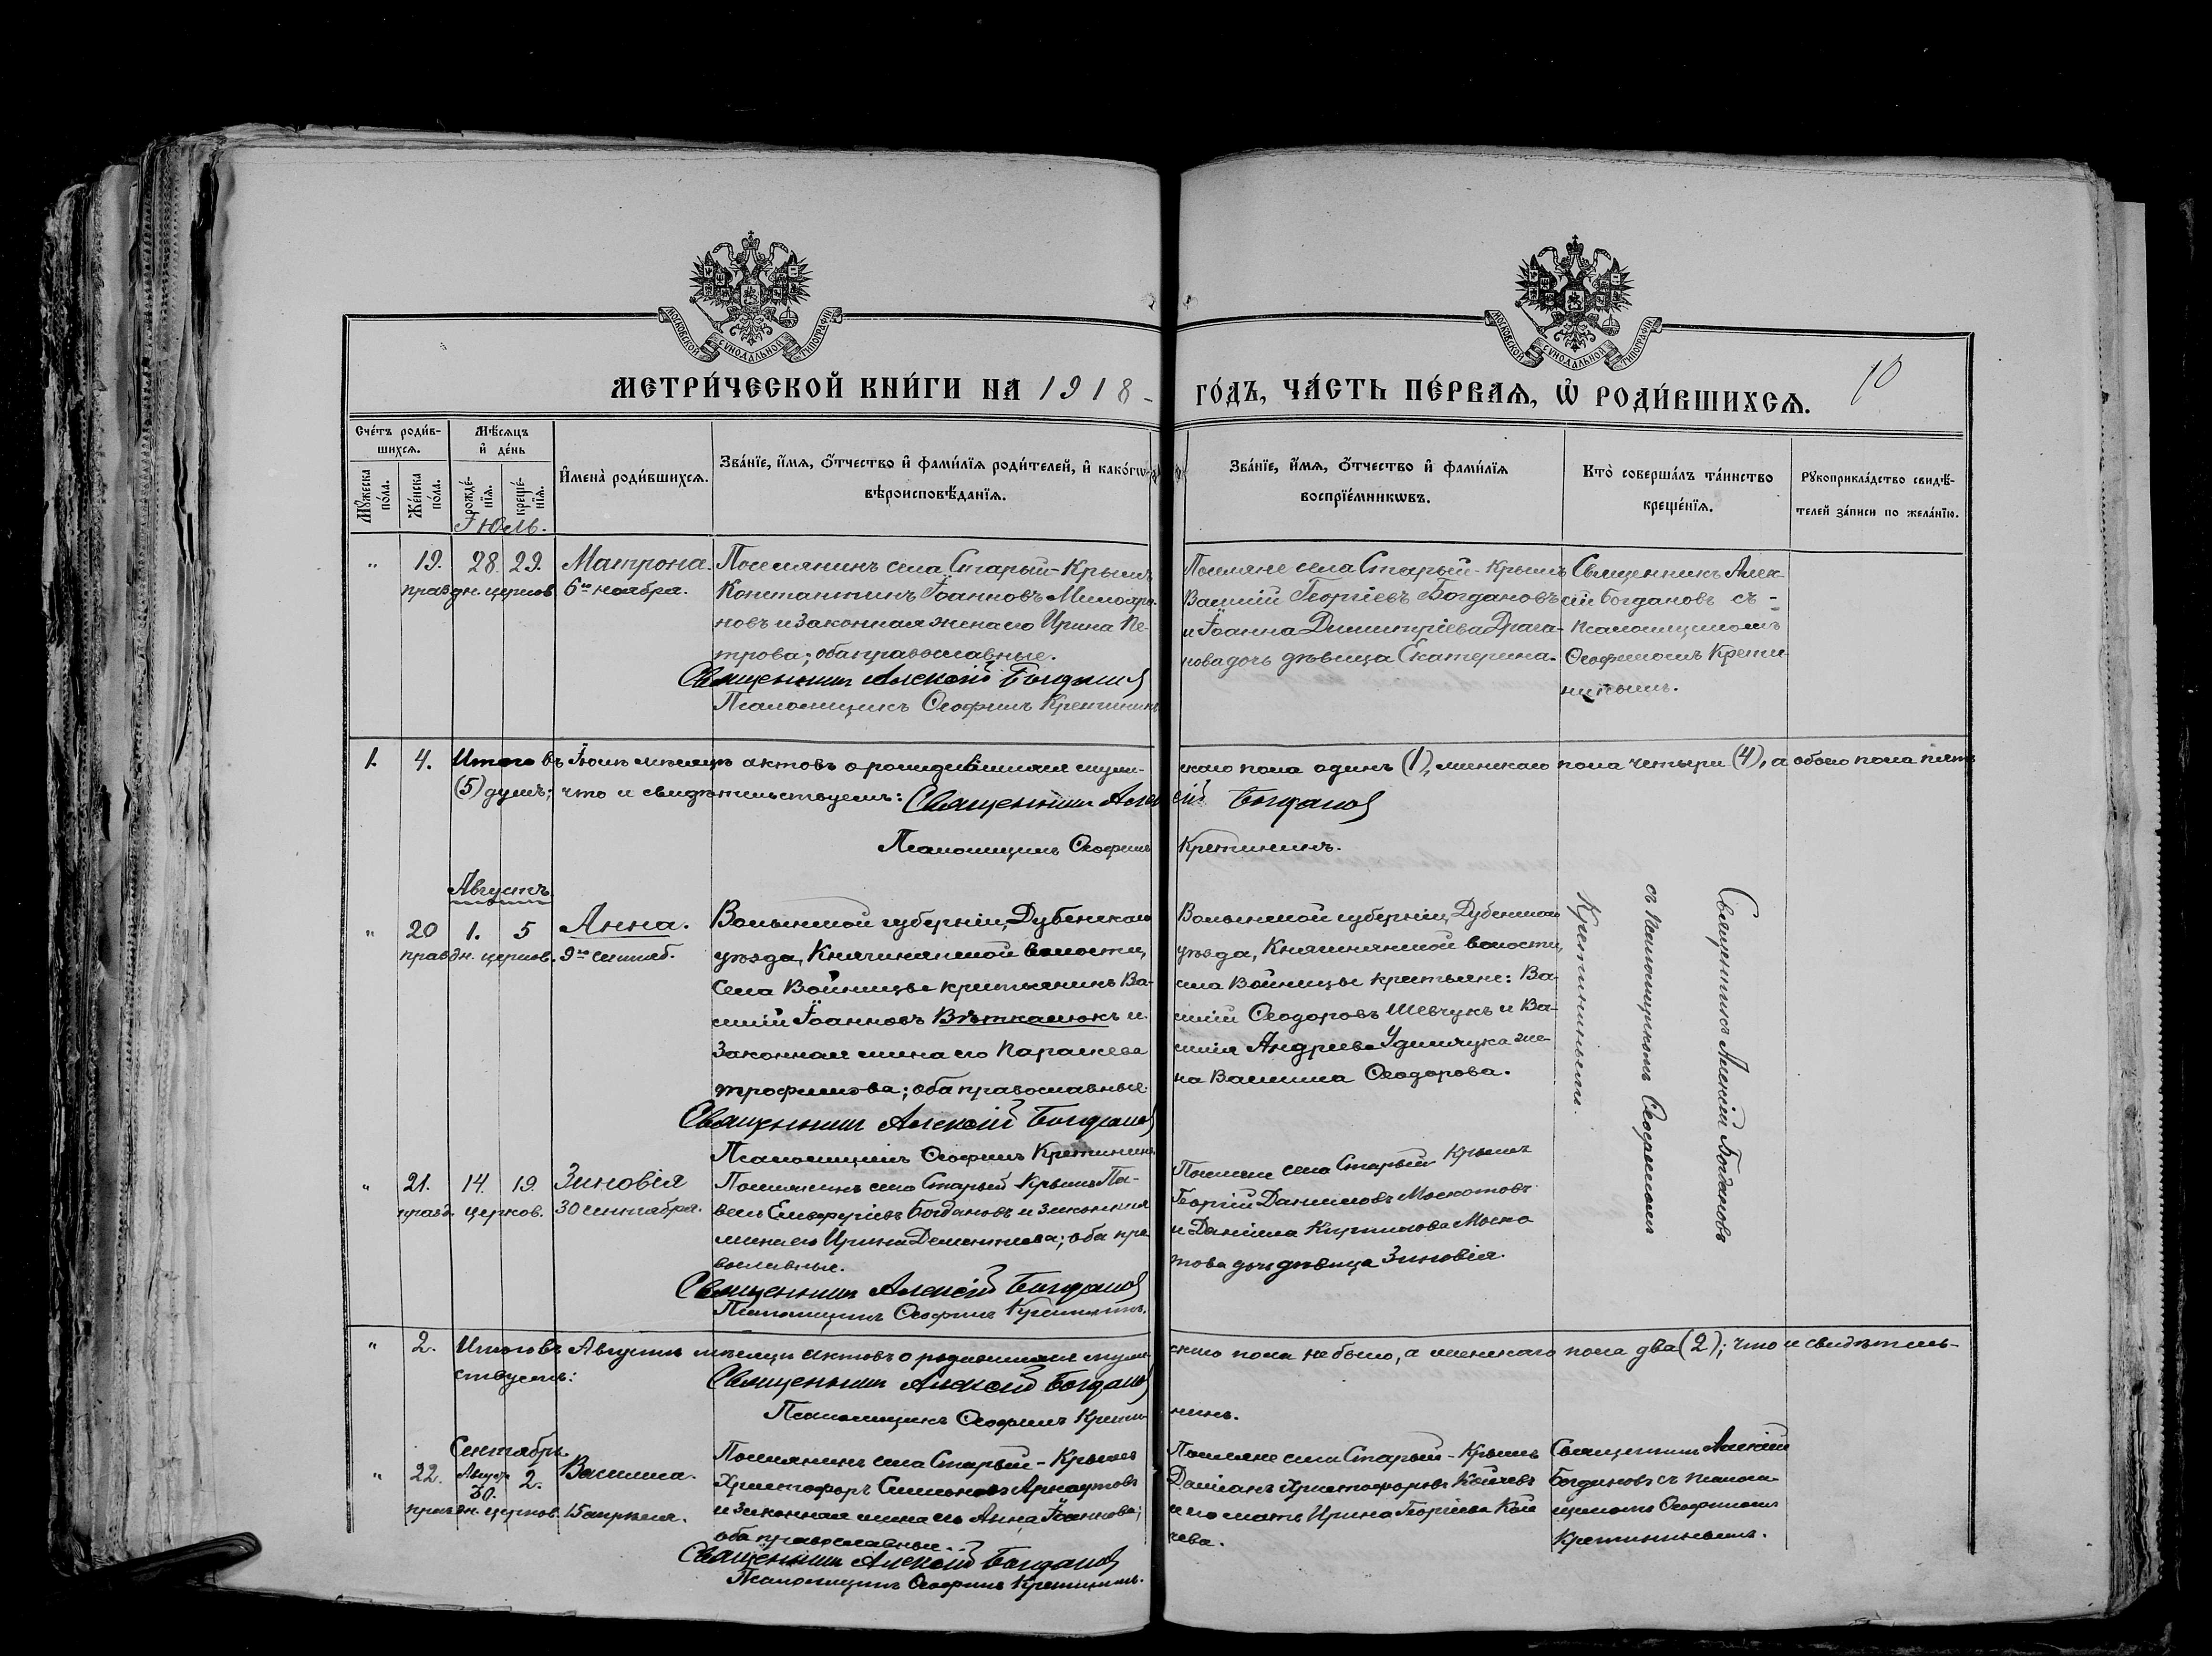 МОСКОВСКОЙ СѴНОДАЛЬНОЙ ТИПОГРАФІИ
МОСКОВСКОЙ СѴНОДАЛЬНОЙ ТИПОГРАФІИ
МЕТРИ́ЧЕСКОЙ КНИ́ГИ НА 1918
ГО́ДЪ, ЧА́СТЬ ПЕ́РВАѦ, Ѡ҆ РОДИ́ВШИХСѦ.
10
Сче́тъ роди́в-
шихсѧ.
Мꙋ́жеска по́ла.
Же́нска по́ла.
Мѣ́сѧцъ
и҆ де́нь
рожде́-
нїѧ.
креще́-
нїѧ.
И҆мена̀ роди́вшихсѧ.
Зва́нїе, и҆́мѧ, ѻ҆́тчество и҆ фами́лїѧ роди́телей, и҆ како́гѡ
вѣроисповѣ́данїѧ.
Зва́нїе, и҆́мѧ, ѻ҆́тчество и҆ фами́лїѧ
воспрїе́мникѡвъ.
Кто̀ соверша́лъ та́инство
креще́нїѧ.
Рꙋкоприкла́дство свидѣ́-
телей за́писи по жела́нїю.
Іюль.
" 19. 28. 29. Матрона.
праздн. церков 6го ноября.
Поселянинъ села Старый-Крымъ
Константинъ Іоанновъ
новъ и законная жена его Ирина Пе-
трова; оба православные.
Священникъ Алексій Богданов
Псаломщикъ Ѳеофилъ Кретининъ
Поселяне села Старый-Крымъ
Василій Георгіевъ Богдановъ
и Іоанна Димитріева Драга-
нова дочь дѣвица Екатерина.
Священникъ Алек-
сій Богдановъ съ -
Псаломщикомъ
Ѳеофиломъ Крети
нинымъ.
1. 4. Итого въ Іюлѣ мѣсяцѣ актовъ о родившихся муже-
скаго пола одинъ (1), женскаго пола четыри (4), а обоего пола пять
(5) душъ; что и свидѣтельствуемъ: Священникъ Алексій Богданов
Псаломщикъ Ѳеофилъ Кретининъ.
Августъ
" 20 1. 5 Анна.
праздн. церков. 9го сентяб.
Волынской губерніи, Дубенскаго
уѣзда, Княгининской волости,
села Войницы крестьянинъ Ва-
силій Іоанновъ Вѣткалюкъ и
законная жена его Параскева
Трофимова; оба православные.
Священникъ Алексій Богданов
Псаломщикъ Ѳеофилъ Кретининъ
Волынской губерніи, Дубенскаго
уѣзда, Княгининской волости,
села Войницы крестьяне: Ва-
силій Ѳеодоровъ Шевчукъ и Ва-
силія Андреева жe-
на Василиса Ѳеодорова.
Священникъ Алексій Богдановъ
съ Псаломщикомъ Ѳеофиломъ
Кретининымъ.
" 21. 14. 19. Зиновія
празд. церков. 30 сентября.
Поселянинъ села Старый Крымъ Па-
велъ Елевферіевъ Богдановъ и законная
жена его Ирина Дементіева; оба пра
вославные.
Священникъ Алексій Богданов
Псаломщикъ Ѳеофилъ Кретининъ.
Поселяне села Старый Крымъ
Георгій Даниловъ Москотовъ
и Даніила Кириллова Моско
това дочь дѣвица Зиновія.
" 2. Итого въ Августѣ мѣсяцѣ актовъ о родившихся муже-
скаго пола не было, а женскаго пола два (2); что и свидѣтель-
ствуемъ: Священникъ Алексій Богданов
Псаломщикъ Ѳеофилъ Крети-
нинъ.
Сентябрь.
" 22. Август. 30. 2. Василиса.
праздн. церков. 15 апрѣля.
Поселянинъ села Старый-Крымъ
Христофоръ Симеоновъ Арнаутовъ
и законная жена его Анна Іоаннова;
оба православные.
Священникъ Алексій Богданов
Псаломщикъ Ѳеофилъ Кретининъ.
Поселяне села Старый-Крымъ
Даміанъ Христофоровъ Койчевъ
и его мать Ирина Георгіева Кой
чева.
Священникъ Алексій
Богдановъ съ Псалом-
щикомъ Ѳеофиломъ
Кретининымъ.